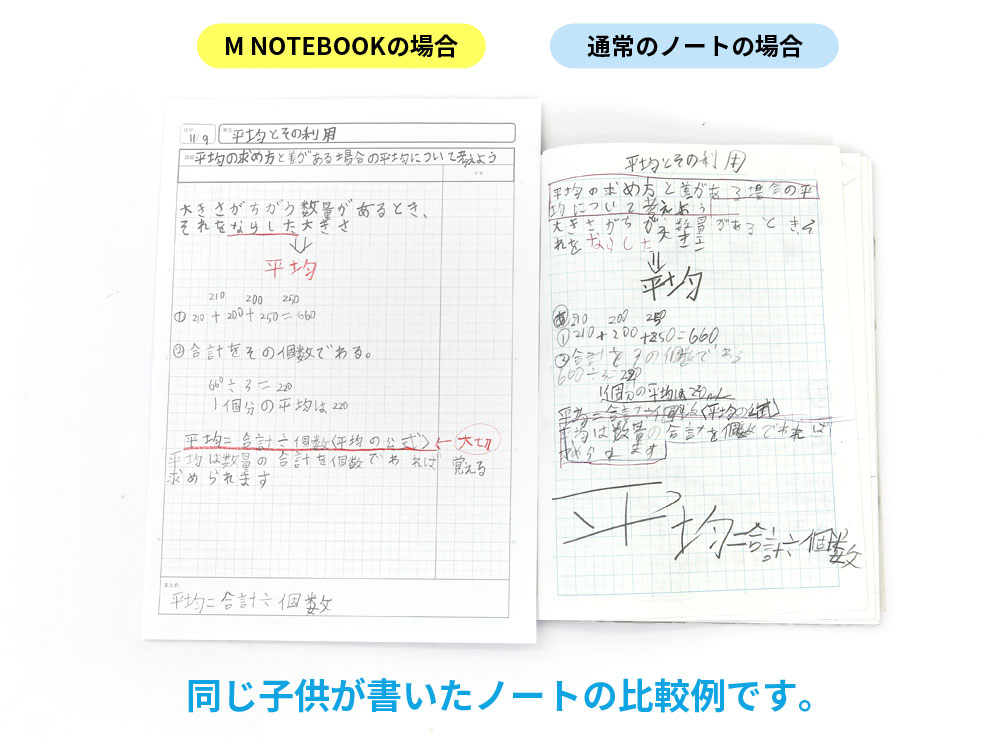 M NOTEBOOKの場合
通常のノートの場合
日付
11/9
単元
平均とその利用
課題
平均の求め方と差がある場合の平均について考えよう
メモ
大きさがちがう数量があるとき、
それをならした大きさ
平均
210 200 250
① 210+200+250=660
② 合計をその個数でわる。
660÷3=220
1個分の平均は220
平均=合計÷個数(平均の公式)←大切
平均は数量の合計を個数でわれば
覚える
求められます
まとめ
平均=合計÷個数
平均とその利用
平均の求め方と差がある場合の平
均について考えよう
大きさがちがう数量があるときそ
れをならした大きさ
平均
210 200 250
①210+200+250=660
②合計をその個数でわる
660÷3=220
1個分の平均は
平均=合計÷個数(平均の公式)
平均は数量の合計を個数でわれば
められます
平均=合計÷個数
同じ子供が書いたノートの比較例です。